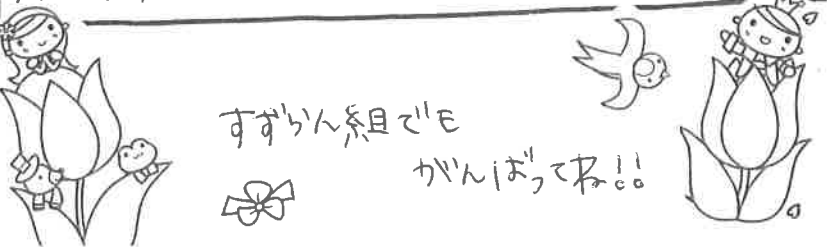 すずらん組でも
がんばってね!!